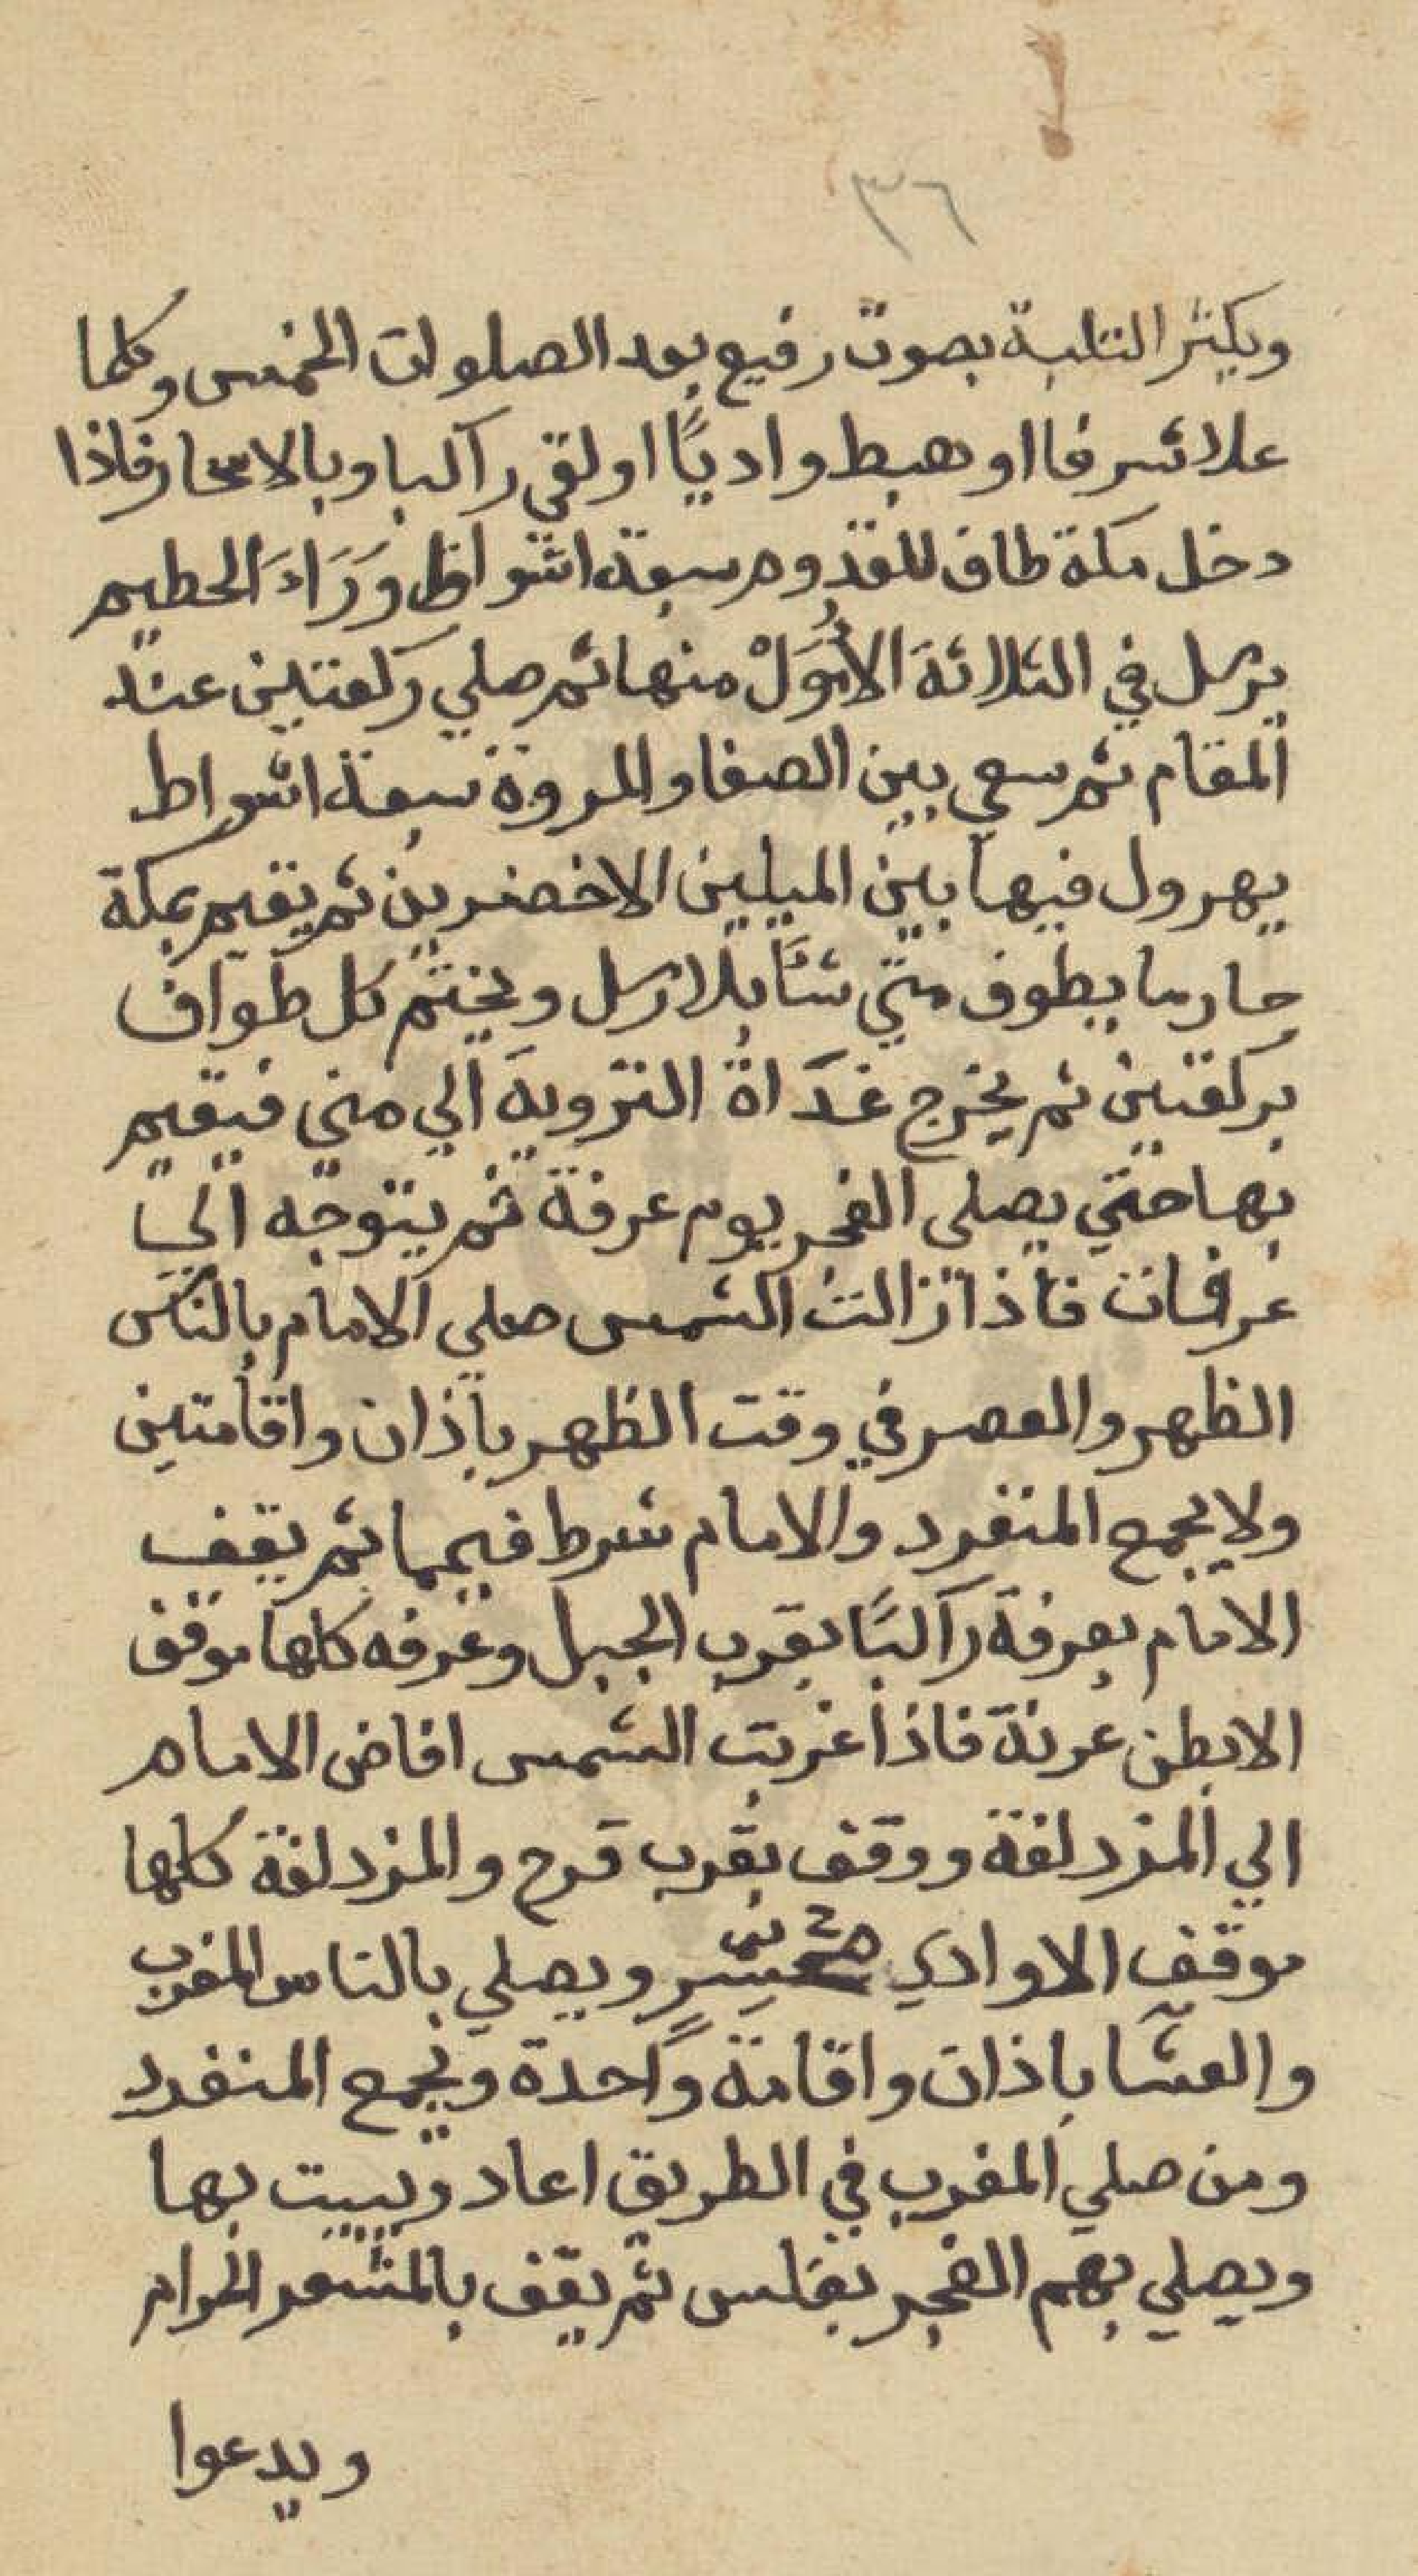 ٣٦
ويكثر التلبية بصوت رفيع بعد الصلوات الخمس وكلما
علا شرفا او هبط واديًا او لقي راكبا وبالاسحار فاذا
دخل مكة طاف للقدوم سبعة اشواط وَرَاءَ الحطيم
يرمل في الثلاثة الأُوَلْ منها ثم صلي ركعتين عند
المقام ثم سعي بين الصفا والمروة سبعة اشواط
يهرول فيها بين الميلين الاخضرين ثم يقيم بمكة
حاربا يطوف متي شأ بلا رمل ويختم كل طواف
بركعتين ثم يخرج غدَاةَ التروية الي مني فيقيم
بها حتي يصلى الفجر يوم عرفة ثم يتوجّه الي
عرفات فاذا زالت الشمس صلي الامام بالناس
الظهر والعصر في وقت الظهر باذان واقامتين
ولا يجمع المنفرد والامام شرط فيهما ثم يقف
الامام بعرفة راكبًا بقرب الجبل وعرفه كلها موقف
الا بطن عرنة فاذا غربت الشمس افاض الامام
الي المزدلفة ووقف بقرب قزح والمزدلفة كلها
موقف الا وادي محسّرٍ ويصلي بالناس المغرب
والعشا باذان واقامة واحدة ويجمع المنفرد
ومن صلي المغرب في الطريق اعاد ويبيت بها
ويصلي بهم الفجر بغلس ثم يقف بالمشعر الحرام
ويدعوا